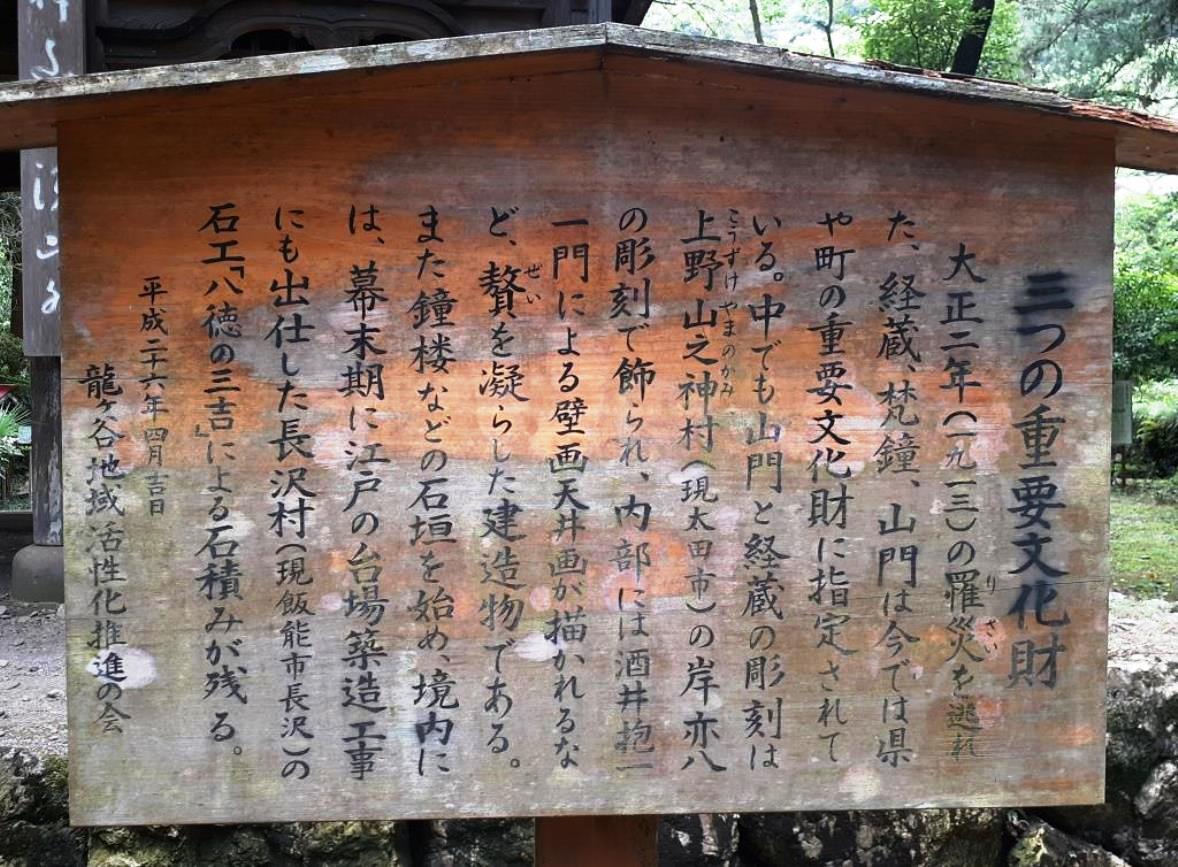 三つの重要文化財
大正二年(一九一三)の羅災を逃れ
た、経蔵、梵鐘、山門は今では県
や町の重要文化財に指定されて
いる。中でも山門と経蔵の彫刻は
上野山之神村(現太田市)の岸亦八
の彫刻で飾られ、内部には酒井抱一
一門による壁画天井画が描かれるな
ど、贅を凝らした建造物である。
また鐘楼などの石垣を始め、境内に
は、幕末期に江戸の台場築造工事
にも出仕した長沢村(現飯能市長沢)の
石工「八徳の三吉」による石積みが残る。
平成二十六年四月吉日
龍ヶ谷地域活性化推進の会